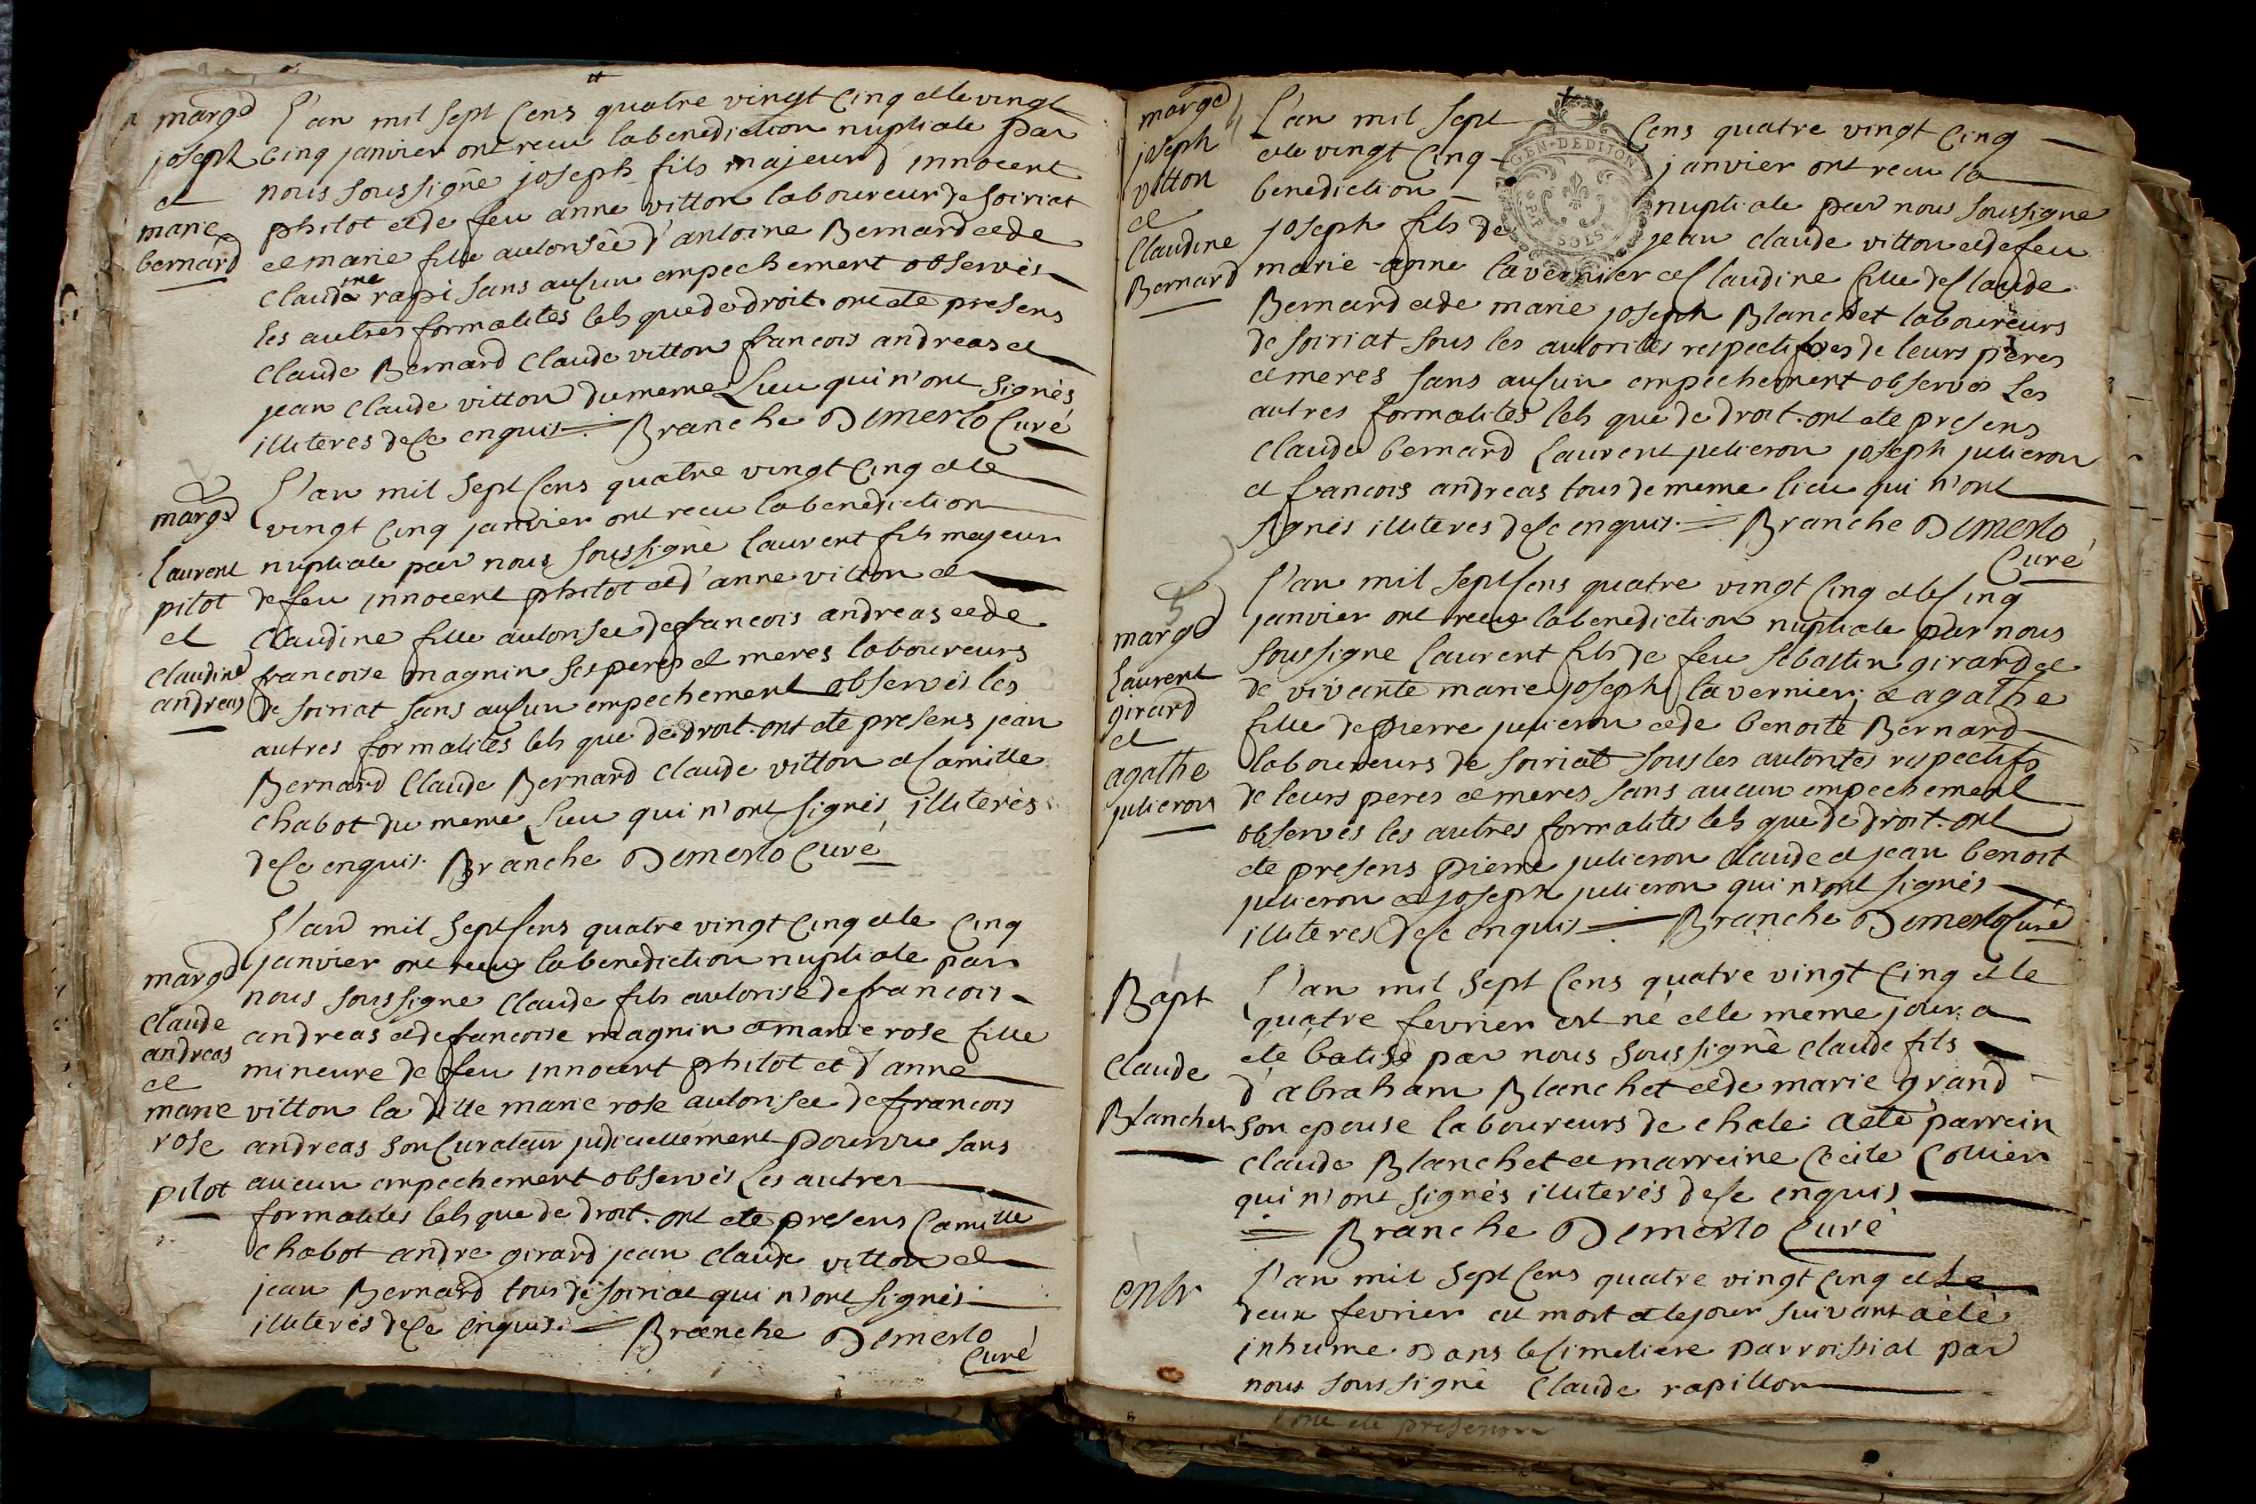 marge
joseph
et
marie
bernard
L'an mil sept cens quatre vingt cinq et le vingt
cinq janvier ont recu la benediction nuptiale par
nous soussigne joseph fils majeur d'innocent
philot et de feu anne vitton laboureur de soiriat
et marie fille autorisée d'antoine Bernard et de
claudine rapi sans aucun empechement observés
les autres formalites tels que de droit. ont ete presens
claude Bernard claude vitton francois andreas et
jean claude vitton du meme lieu qui n'ont signés
illiteres de ce enquis Branche Dimerlo Curé
marge
laurent
pilot
et
claudine
andreas
L'an mil sept cens quatre vingt cinq et le
vingt cinq janvier ont recu la benediction
nuptiale par nous soussigné laurent fils majeur
de feu innocent philot et d'anne vitton et
claudine fille autorisee de francois andreas et de
francoise magnin ses peres et meres laboureurs
de soiriat sans aucun empechement observés les
autres formalités tels que de droit. ont ete presens jean
Bernard Claude Bernard claude vitton et camille
chabot du meme lieu qui n'ont signés illiterés
de ce enquis. Branche Dimerlo Curé
marge
claude
andreas
et
marie
rose
pilot
L'an mil sept cens quatre vingt cinq et le cinq
janvier ont recu la benediction nuptiale par
nous soussigne claude fils autorise de francois
andreas et de francoise magnin et marie rose fille
mineure de feu innocent philot et d'anne
vitton la ditte marie rose autorisee de francois
andreas son curateur judiciellement pourvu sans
aucun empechement observés les autres
formalites tels que de droit. ont ete presens Camille
chabot andre girard jean claude vitton et
jean Bernard tous de soiriat qui n'ont signés
illiterés de ce enquis. Branche Dimerlo
Curé
marge
joseph
vitton
et
Claudine
Bernard
L'an mil sept cens quatre vingt cinq
et le vingt cinq janvier ont recu la
benediction nuptiale par nous soussigne
joseph fils de jean claude vitton et de feu
marie anne lavernier et claudine fille de claude
Bernard et de marie joseph Blanchet laboureurs
de soiriat sous les autorités respectives de leurs peres
et meres sans aucun empechement observés les
autres formalités tels que de droit. ont ete presens
claude bernard laurent julieron joseph julieron
et francois andreas tous de meme lieu qui n'ont
signés illiteres de ce enquis. Branche Dimerlo
Curé
GEN-DE DIJON
SOLS
marge
laurent
girard
et
agathe
julieron
L'an mil sept cens quatre vingt cinq et le cinq
janvier ont recu la benediction nuptiale par nous
soussigne laurent fils de feu sebastin girard et
de vivante marie joseph lavernier; et agathe
fille de pierre julieron et de benoite Bernard
laboureurs de soiriat sous les autorités respectifs
de leurs peres et meres sans aucun empechement
observés les autres formalités tels que de droit. ont
ete presens pierre julieron claude et jean benoit
julieron et joseph julieron qui n'ont signés
illiteres de ce enquis Branche Dimerlo Curé
Bapt
Claude
Blanchet
L'an mil sept cens quatre vingt cinq et le
quatre fevrier est né et le meme jour a
ete batisé par nous soussigné claude fils
d'abraham Blanchet et de marie grand
son epouse laboureurs de chale. a ete parrein
claude Blanchet et marreine cecile Collier
qui n'ont signés illiterés de ce enquis
Branche Dimerlo Curé
enter
L'an mil sept cens quatre vingt cinq et le
deux fevrier est mort et le jour suivant a été
inhume dans le cimetiere parroissial par
nous soussigné Claude rapillon
ont ete presens